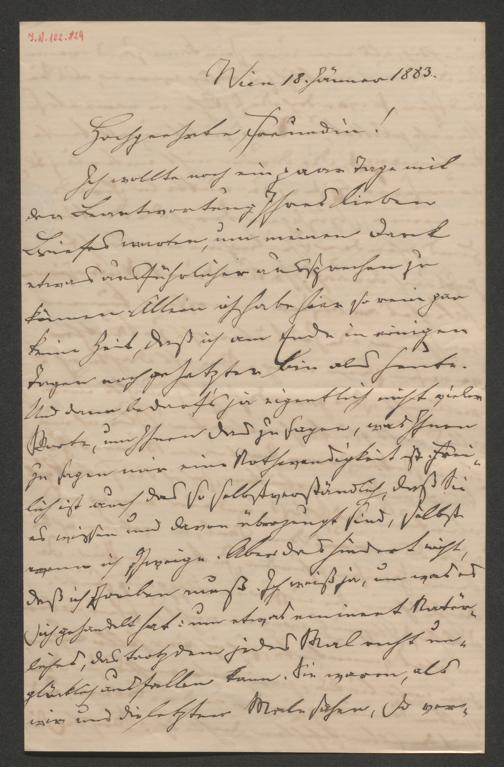 I.N. 122.424
Wien 18. Jänner 1883.
Hochgeehrte Freundin!
Ich wollte noch ein paar Tage mit
der Beantwortung Ihres lieben
Briefes warten, um meinen Dank
etwas ausführlicher aussprechen zu
können. Allein ich habe hier so rein gar
keine Zeit, daß ich am Ende in einigen
Tagen noch gehetzter bin als heute.
Und dann bedarfs ja eigentlich nicht vieler
Worte, um Ihnen das zu sagen, was Ihnen
zu sagen mir eine Nothwendigkeit ist. Frei-
lich ist auch das so selbstverständlich, daß Sie
es wissen und davon überzeugt sind, selbst
wenn ich schweige. Aber das hindert nicht,
daß ich schreiben muß. Ich weiß ja, um was es
sich gehandelt hat: um etwas eminent Natür-
liches, das trotzdem jedes Mal recht un-
glücklich ausfallen kann. Sie waren, als
wir uns die letzten Male sahen, so ver-